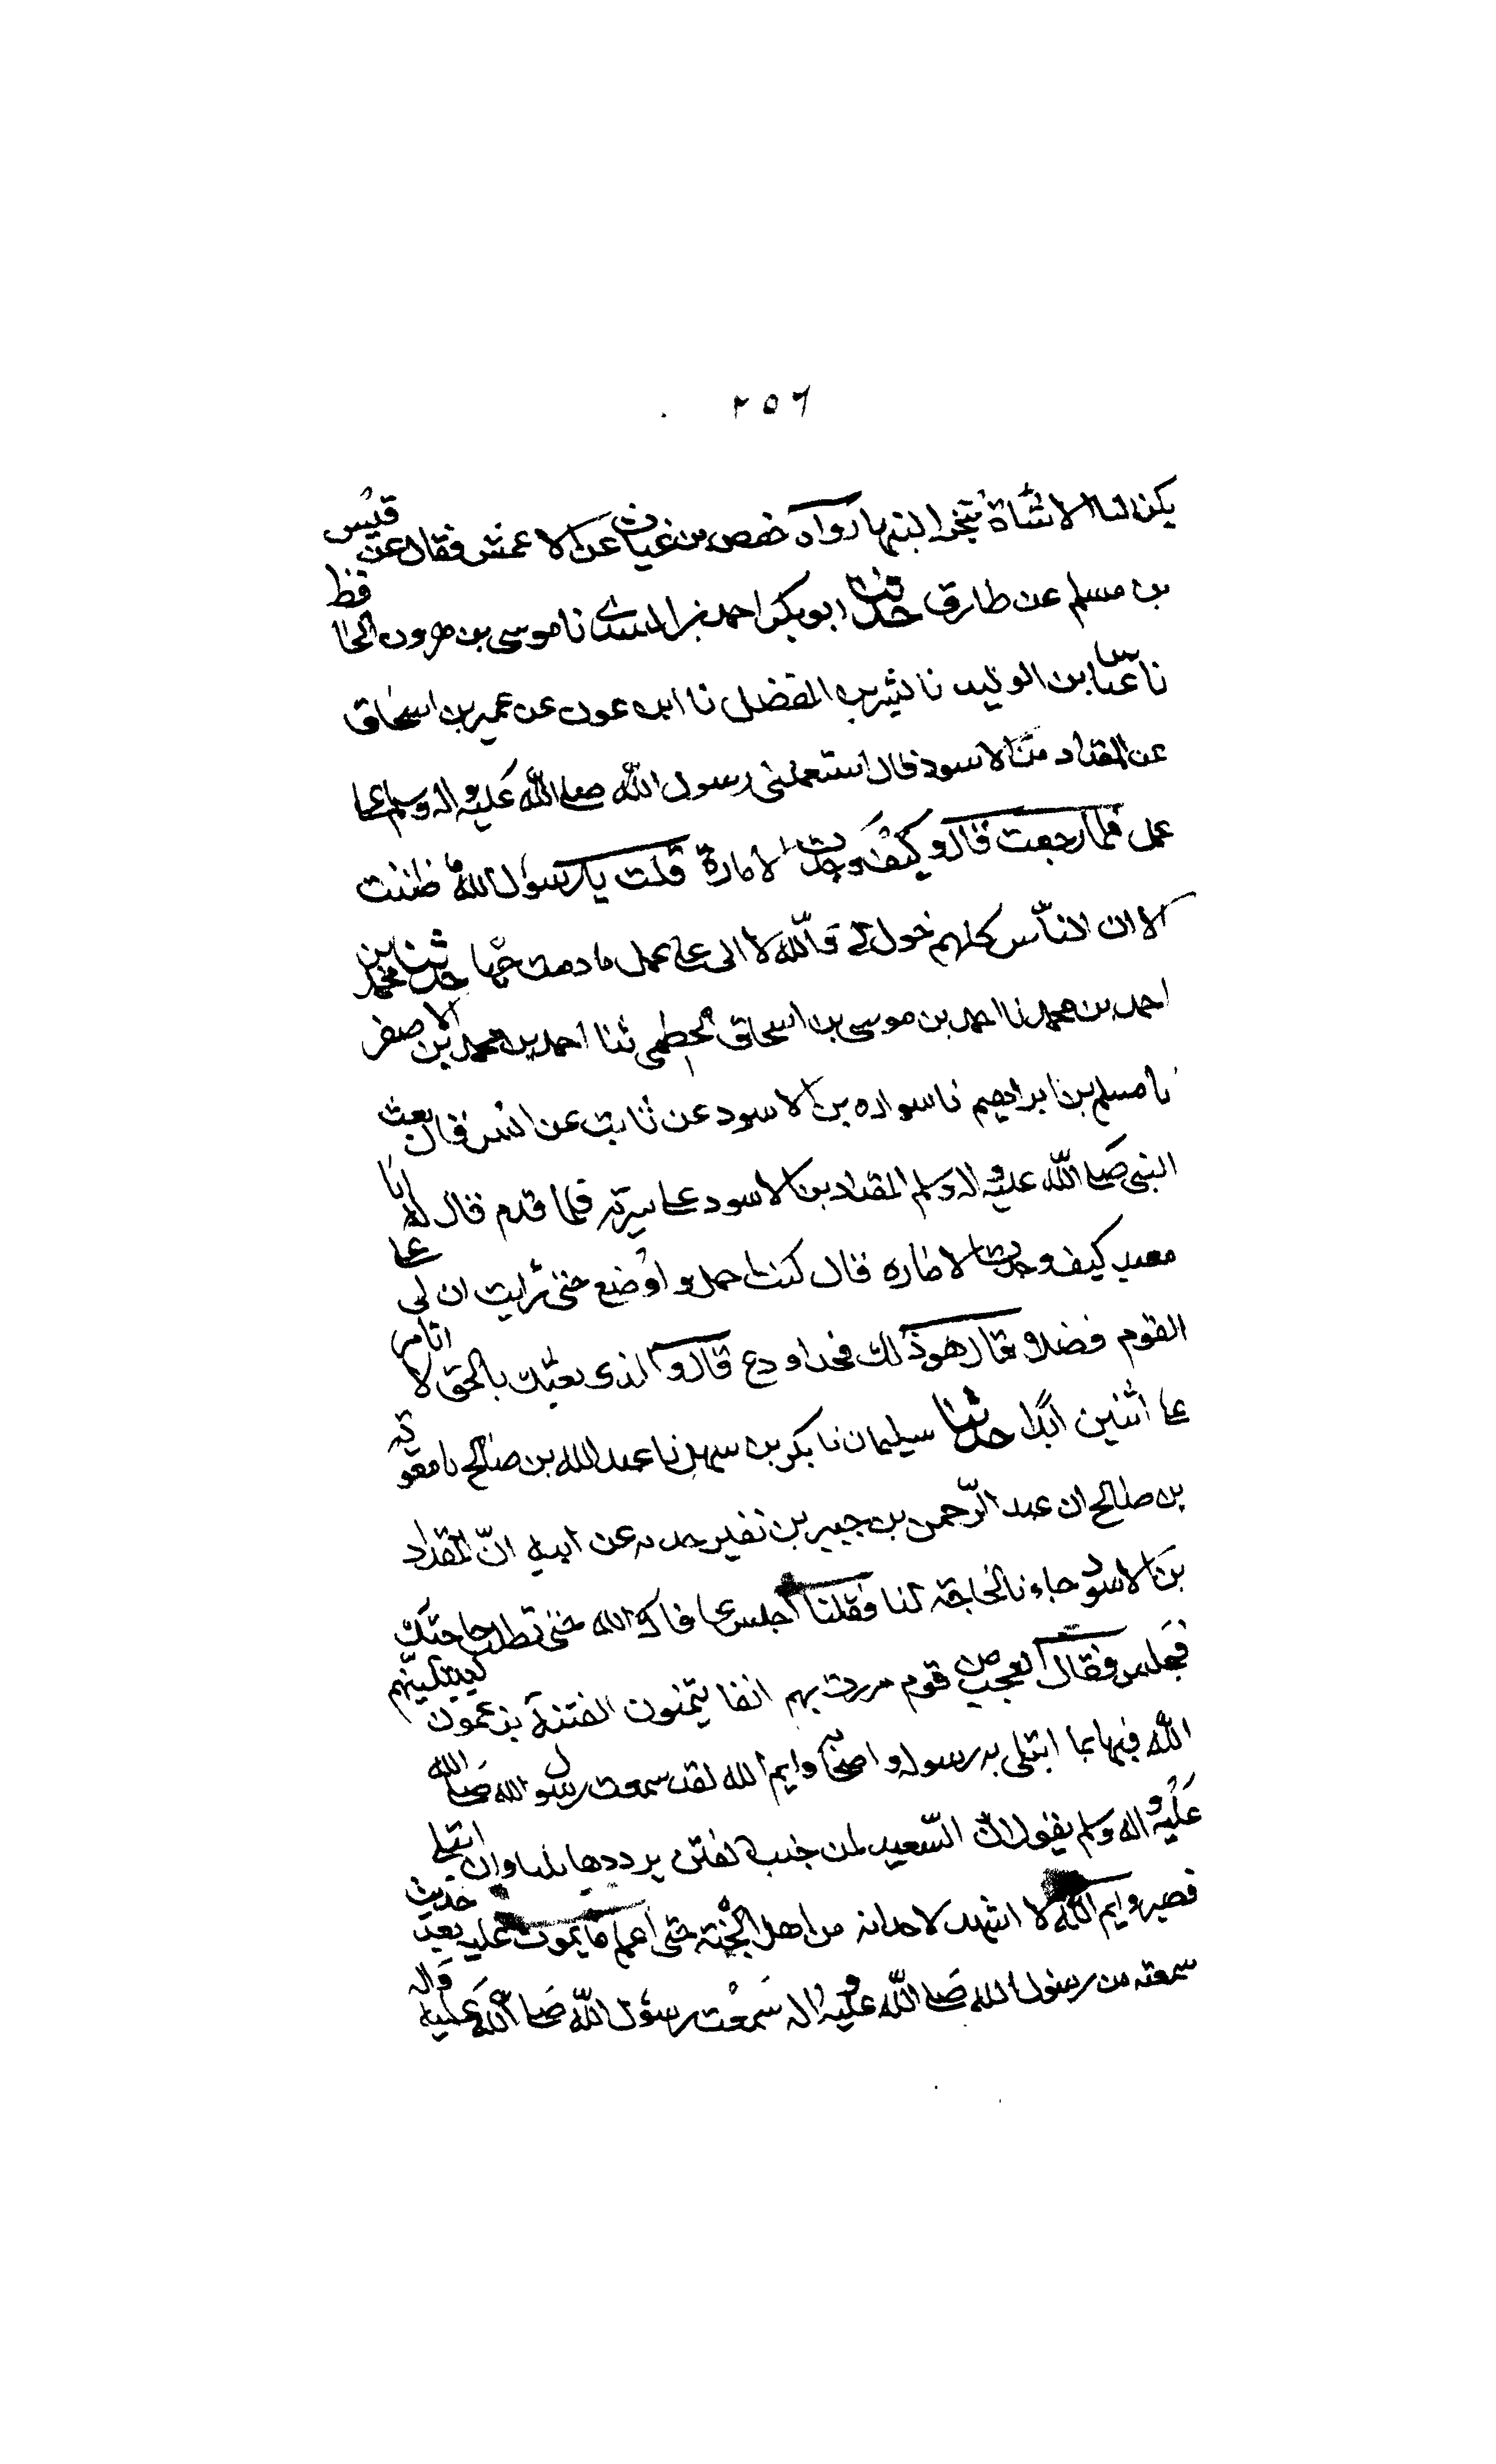 ٢٥٦
يكن لنا الا شاة نتجزا لبنها رواه حفص بن غياث عن الاعمش فقال عن قيس
بن مسلم عن طارق حدثنا ابو بكر احمد بن السندى نا موسى بن هرون الحافظ
نا عباس بن الوليد نا بشر بن المفضل نا ابن عون عن عمير بن اسحاق
عن المقداد بن الاسود قال استعملنى رسول الله صلى الله عليه واله وسلم على
عمل فلما رجعت قال و كيف وجدت الامارة قلت يا رسول الله ما ظننت
الا ان الناس كلهم خول لى والله لا الى على عمل ما دمت حيا حدثنا محمد بن
احمد بن محمد نا احمد بن موسى بن اسحاق الخطمى ثنا احمد بن محمد بن الاصفر
نا مسلم بن ابراهيم نا سواده بن الاسود عن ثابت عن انس قال بعث
النبى صلى الله عليه واله وسلم المقداد بن الاسود على سرية فلما قدم قال له ابا
معبد كيف وجدت الاماره قال كنت احمل و اوضع حتى رايت ان لى على
القوم فضلا قال هو ذلك فخذ او دع قال والذى بعثك بالحق لا اتامر
على اثنين ابدا حدثنا سليمان نا بكر بن سهل نا عبد الله بن صالح نا معوية
بن صالح ان عبد الرحمن بن جبير بن نفير حدثه عن ابيه ان المقداد
بن الاسود جاءنا لحاجة لنا فقلنا اجلس عافاك الله حتى تطلب حاجتك
فجلس فقال العجب من قوم مررت بهم انفا يتمنون الفتنة يزعمون ليبتلينهم
الله فيها بما ابتلى به رسوله و اصحابه وايم الله لقد سمعت رسول الله صلى الله
عليه واله وسلم يقول ان السعيد لمن جنب الفتن يرددها ثلثا وان ابتلى
فصبر وايم الله لا اشهد لاحد انه من اهل الجنة حتى اعلم ما يموت عليه بعد حديث
سمعته من رسول الله صلى الله عليه واله سمعت رسول الله صلى الله عليه واله